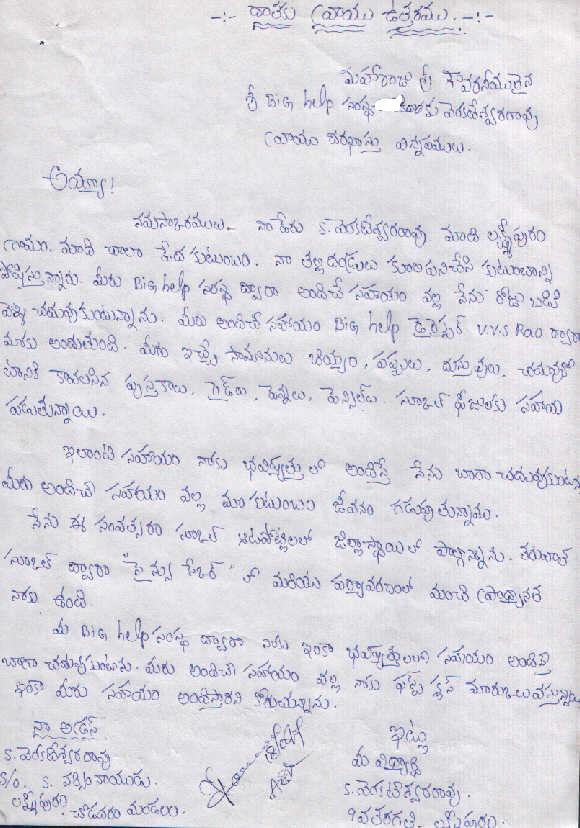 -:- దాతకు వ్రాయు ఉత్తరము. -:-
మహారాజశ్రీ గౌరవనీయులైన
శ్రీ Big help సంస్థ వెంకటేశ్వరరావు
వ్రాయు దరఖాస్తు విన్నపములు.
అయ్యా!
నమస్కారములు. నా పేరు K. వెంకటేశ్వరరావు మాది లక్ష్మీపురం
గ్రామం. మాది చాలా పేద కుటుంబం. నా తల్లిదండ్రులు కూలి పనిచేసి కుటుంబాన్ని
పోషిస్తున్నారు. మీరు Big help సంస్థ ద్వారా అందించే సహాయం వల్ల నేను రోజు బడికి
వెళ్లి చదువుకుంటున్నాను. మీరు అందించే సహాయం Big help డైరెక్టర్ V.V.S Rao ద్వారా
మాకు అందుతుంది. మీరు ఇచ్చే సామానులు బియ్యం, పప్పులు, దుస్తువులు, చదువుకో
వటానికి కావలసిన పుస్తకాలు, గైడ్లు, పెన్నులు, పెన్సిల్లు, స్కూల్ ఫీజులకు సహాయ
పడుతున్నాయి.
ఇలాంటి సహాయం నాకు భవిష్యత్తులో అందిస్తే నేను బాగా చదువుకుంటాను
మీరు అందించే సహాయం వల్ల మా కుటుంబం జీవనం గడుపుతున్నాము.
నేను ఈ సంవత్సరం స్కూల్ ఆటపోటీలలో జిల్లాస్థాయిలో పాల్గొన్నాను. తరువాత
స్కూల్ ద్వారా "సైన్సు ఫేర్" లో మరియు పర్యావరణంలో మంచి ప్రావీణ్యత
నాకు ఉంది.
మీ Big help సంస్థ ద్వారా నాకు ఇంకా భవిష్యత్తులో సహాయం అందిస్తే
బాగా చదువుకుంటాను. మీరు అందించే సహాయం వల్ల నాకు ఫస్ట్ క్లాస్ మార్కులు వస్తున్నాయి
ఇంకా మీరు సహాయం అందిస్తారని కోరుచున్నాను.
నా అడ్రస్
K. వెంకటేశ్వరరావు
S/o. K. నాయుడు.
లక్ష్మీపురం చోడవరం మండలం.
ఇట్లు
మీ విద్యార్థి
K. వెంకటేశ్వరరావు.
9వ తరగతి, లక్ష్మీపురం.